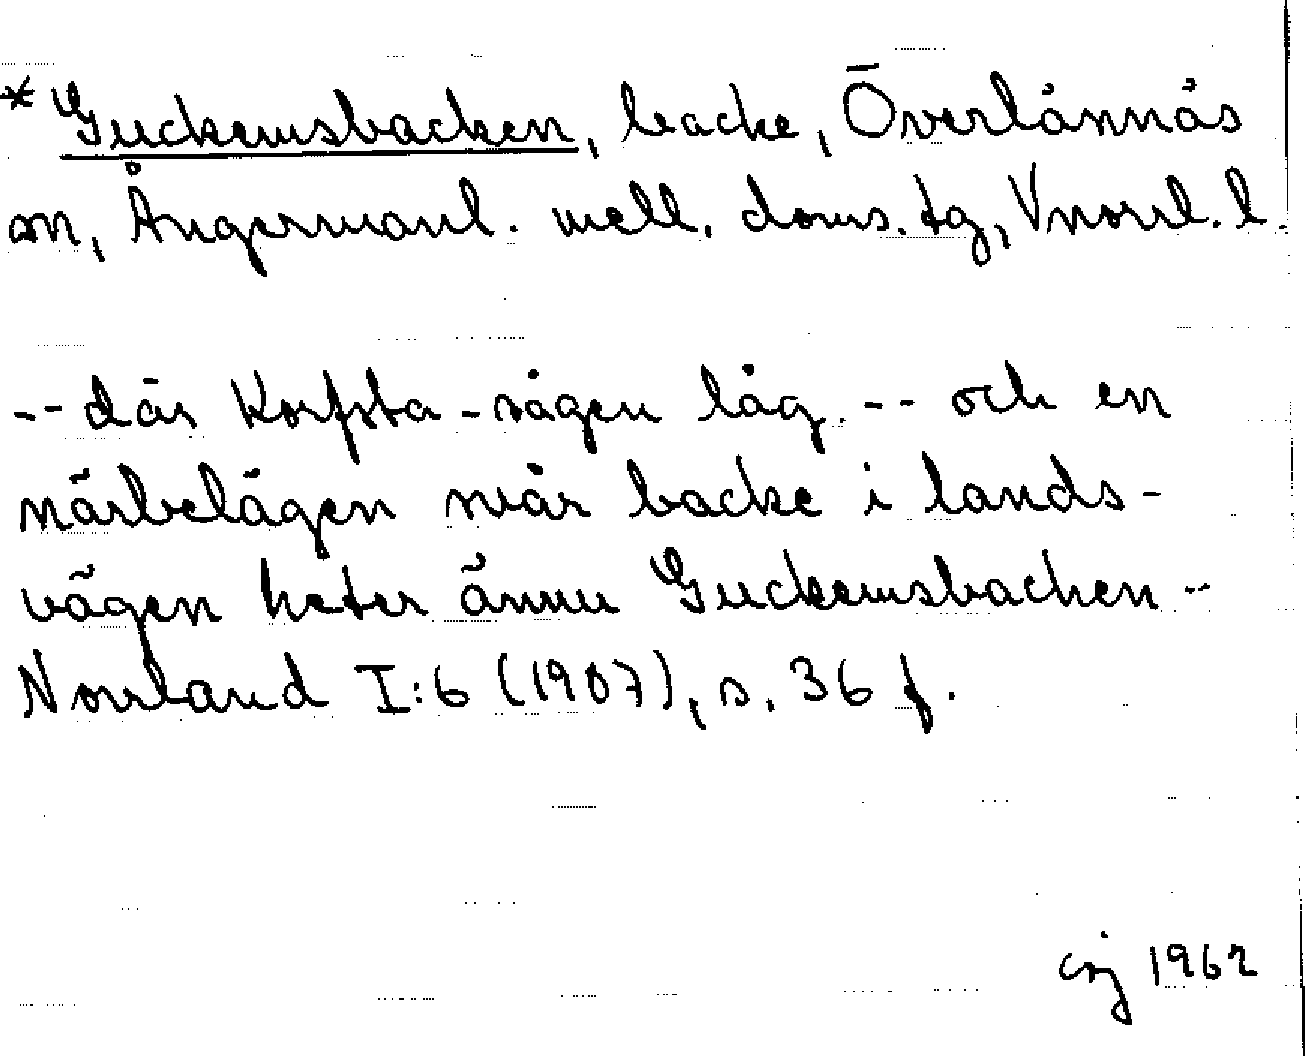 * Guckemsbacken, backe, Överlännäs
sn, Ångermanl. mell. doms. tg, Vnorrl. l.
-- där Korfsta-sågen låg. -- och en
närbelägen svår backe i lands-
vägen heter ännu Guckemsbacken --
Norrland I:6 (1907), s. 36 f.
csj 1962